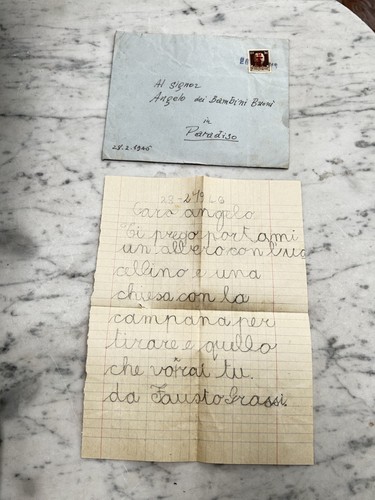 Al signor
Angelo dei Bambini Buoni
in
Paradiso
28.2.1946
28-2-1946
Caro angelo
Ti prego portami
un albero con l'uc
cellino e una
chiesa con la
campana per
tirare e quello
che vorai tu.
da Fausto Grassi.